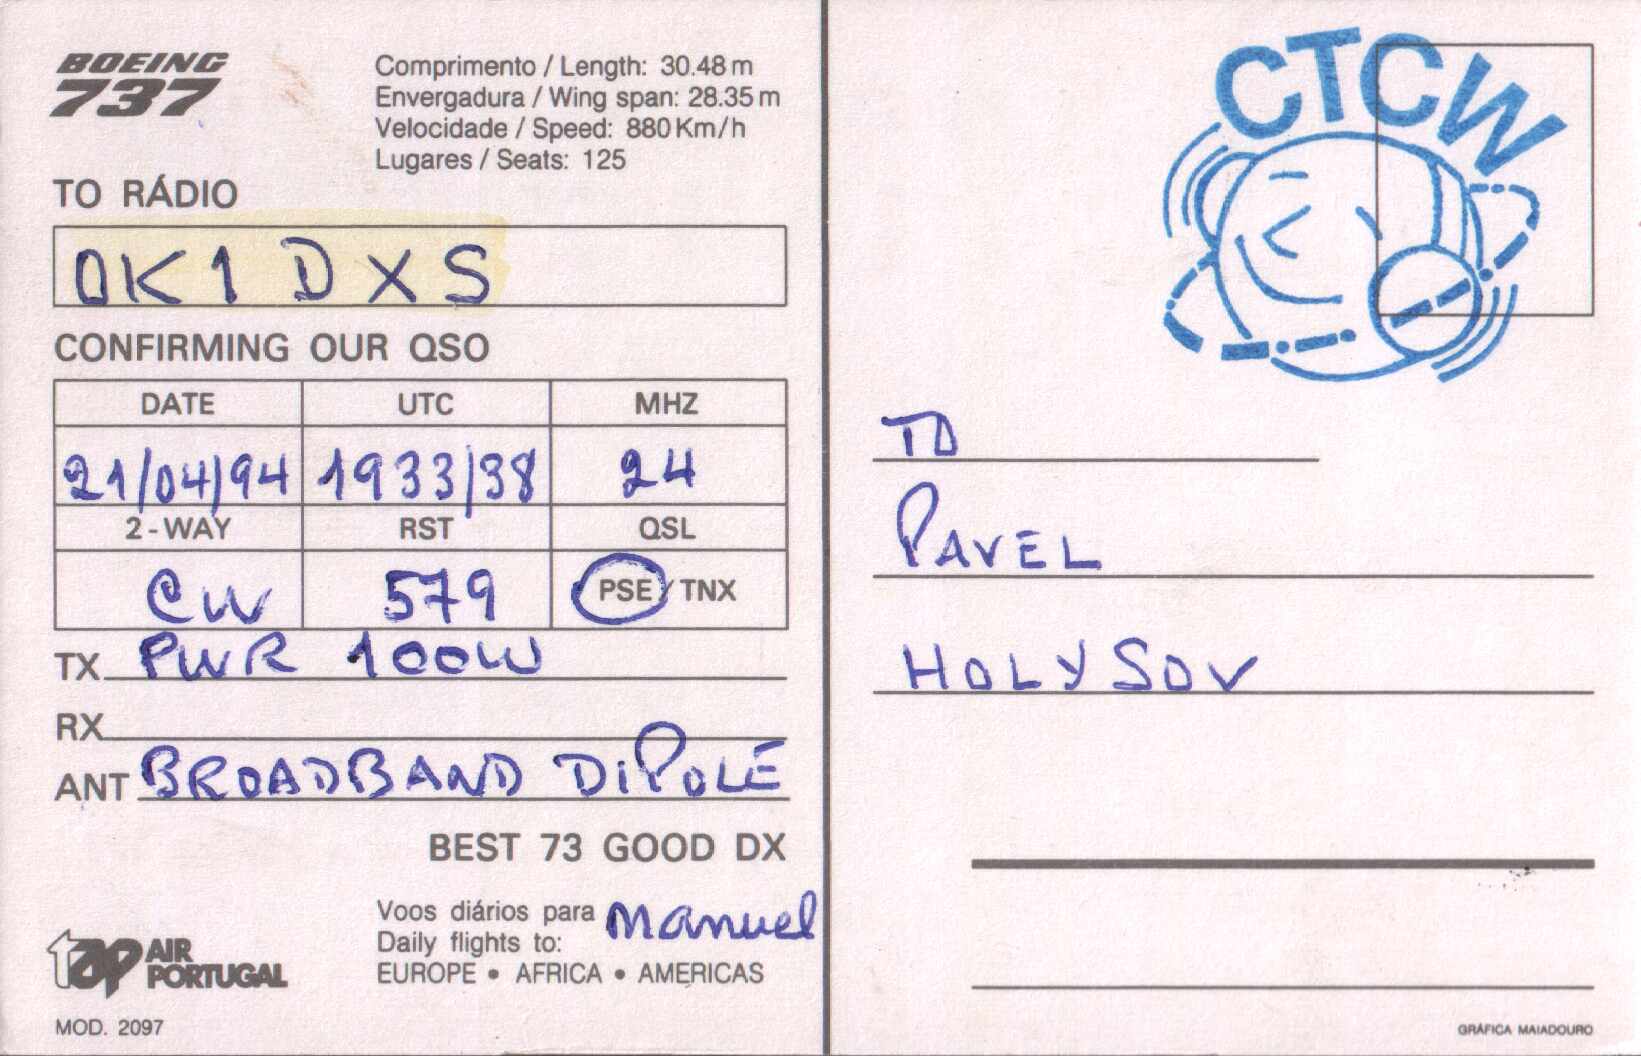 BOEING
737
Comprimento / Length: 30.48 m
Envergadura / Wing span: 28.35 m
Velocidade / Speed: 880 Km/h
Lugares / Seats: 125
TO RÁDIO
OK1DXS
CONFIRMING OUR QSO
DATE UTC MHZ
21/04/94 1933/38 24
2-WAY RST QSL
CW 579 PSE / TNX
TX PWR 100W
RX
ANT BROADBAND DIPOLE
BEST 73 GOOD DX
Voos diários para
Daily flights to:
EUROPE • AFRICA • AMERICAS
Manuel
TAP AIR
PORTUGAL
MOD. 2097
CTCW
TO
PAVEL
HOLYSOV
GRÁFICA MAIADOURO